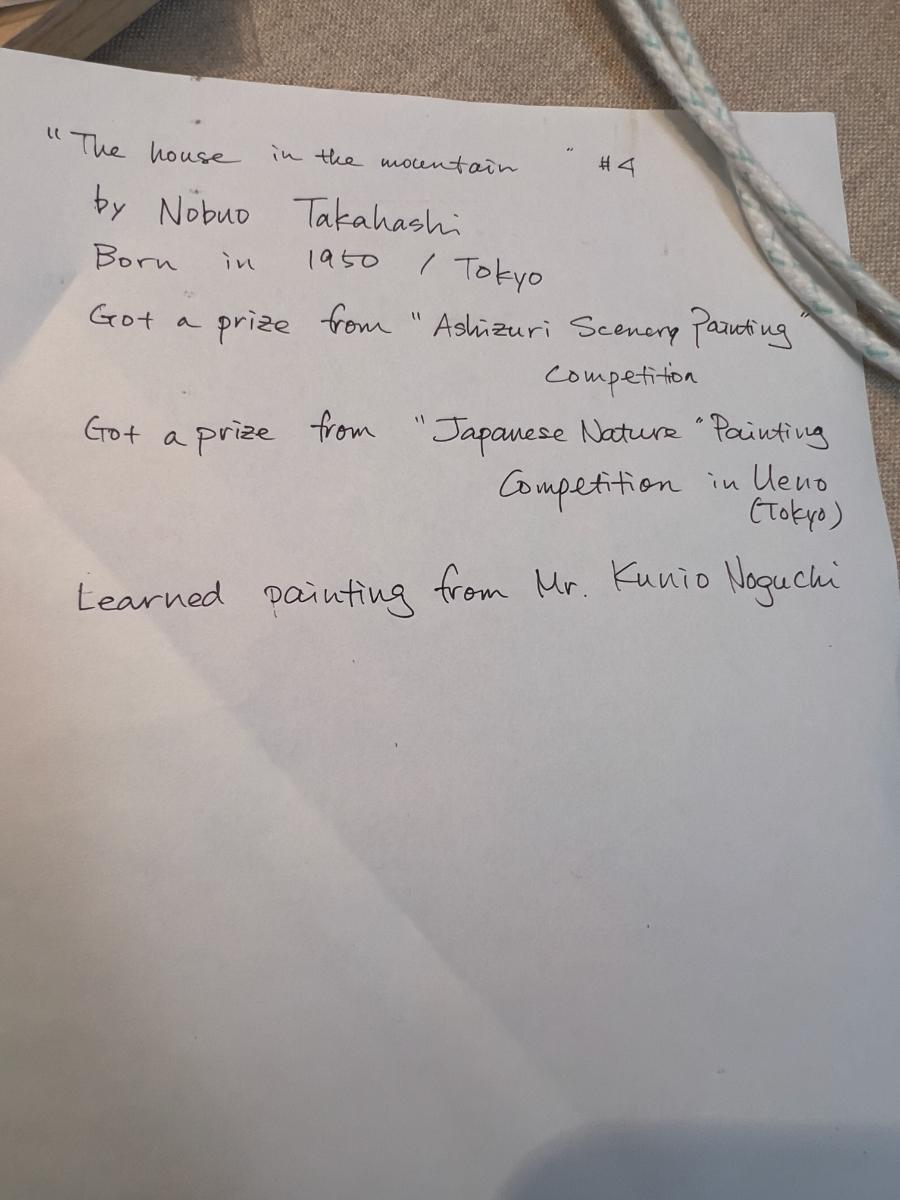 "The house in the mountain" #4
by Nobuo Takahashi
Born in 1950 / Tokyo
Got a prize from "Ashizuri Scenery Painting"
Competition
Got a prize from "Japanese Nature" Painting
Competition in Ueno
(Tokyo)
Learned painting from Mr. Kunio Noguchi